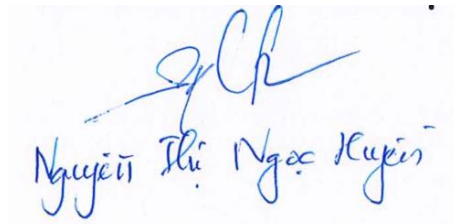 Nguyễn Thị Ngọc Huyền